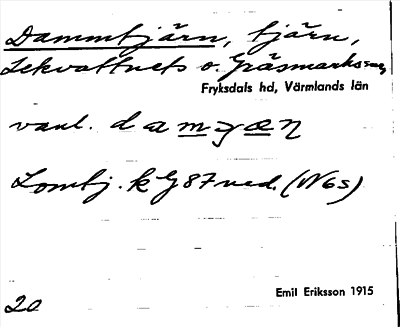 Dammtjärn, tjärn,
Lekvattnets o. Gräsmarks snr,
Fryksdals hd, Värmlands län
vanl.
Lomtj. k G 87 ned. (N6s)
Emil Eriksson 1915
20